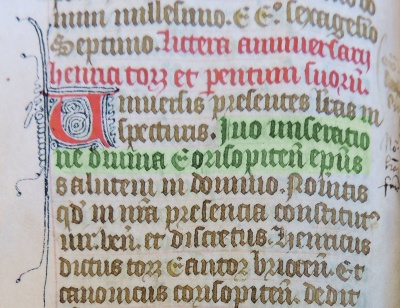 num millesimo. CC°. sexagesio
Septimo. Littera anniversarij
henrici torz et parentum suorum.
Universis presentes lras in
specturis. Juo miseratio
ne divina Corisopiten epus
salutem in domino. Noveritis
qd in nra presencia constitut9
vir. ven. et discretus. Henricus
dictus torz Cantor briocen. Et
canonicus corisopiten. dedit